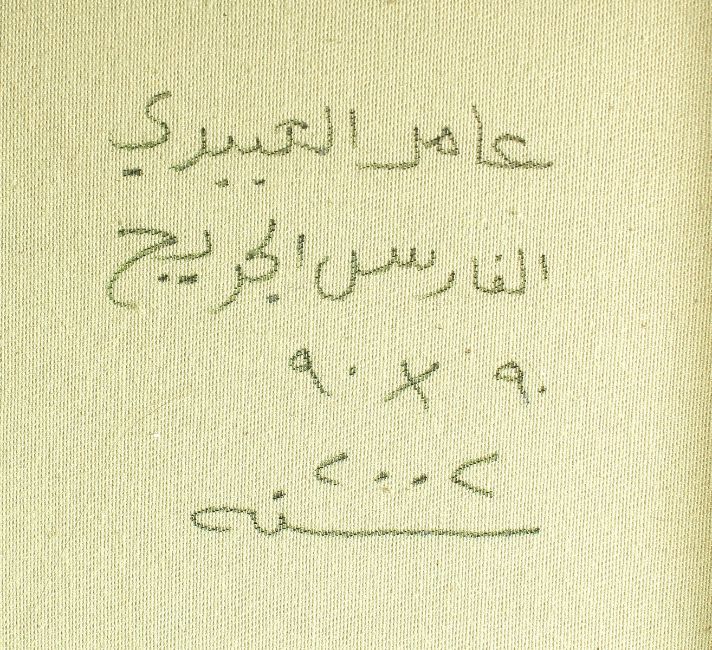 عامر العبيدي
الفارس الجريح
٩٠ X ٩٠
٢٠٠٢
سنه